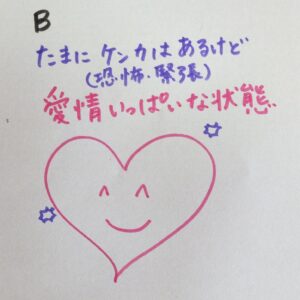 B
たまに ケンカは あるけど
(恐怖・緊張)
愛情いっぱいな状態